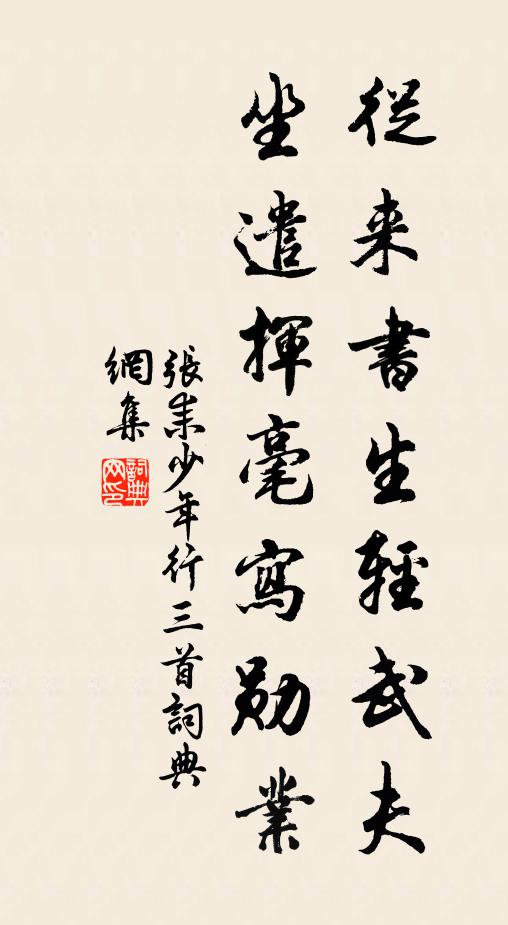 從来書生輕武夫
坐遣揮毫寫勛業
張耒少年行三首詞典
網集
詞典網印